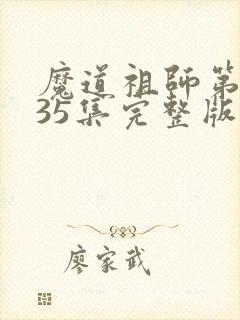 魔道祖師第
35集完整版
廖家武